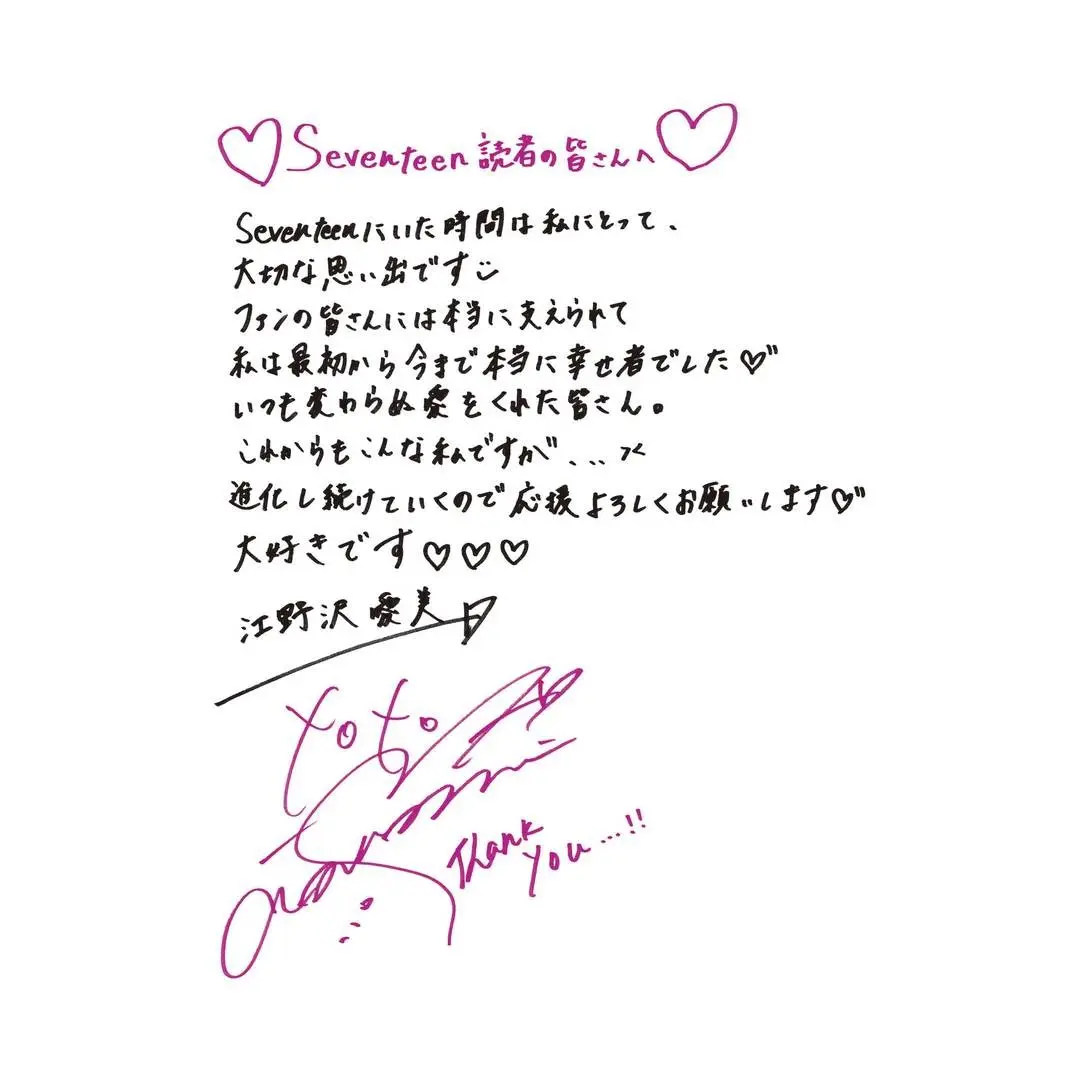 ♡Seventeen読者の皆さんへ♡
Seventeenにいた時間は私にとって、
大切な思い出です
ファンの皆さんには本当に支えられて
私は最初から今まで本当に幸せ者でした♡
いつも変わらぬ愛をくれた皆さん。
これからもこんな私ですが、...
進化し続けていくので応援よろしくお願いします♡
大好きです♡♡♡
江野沢愛美
Thank
you...!!